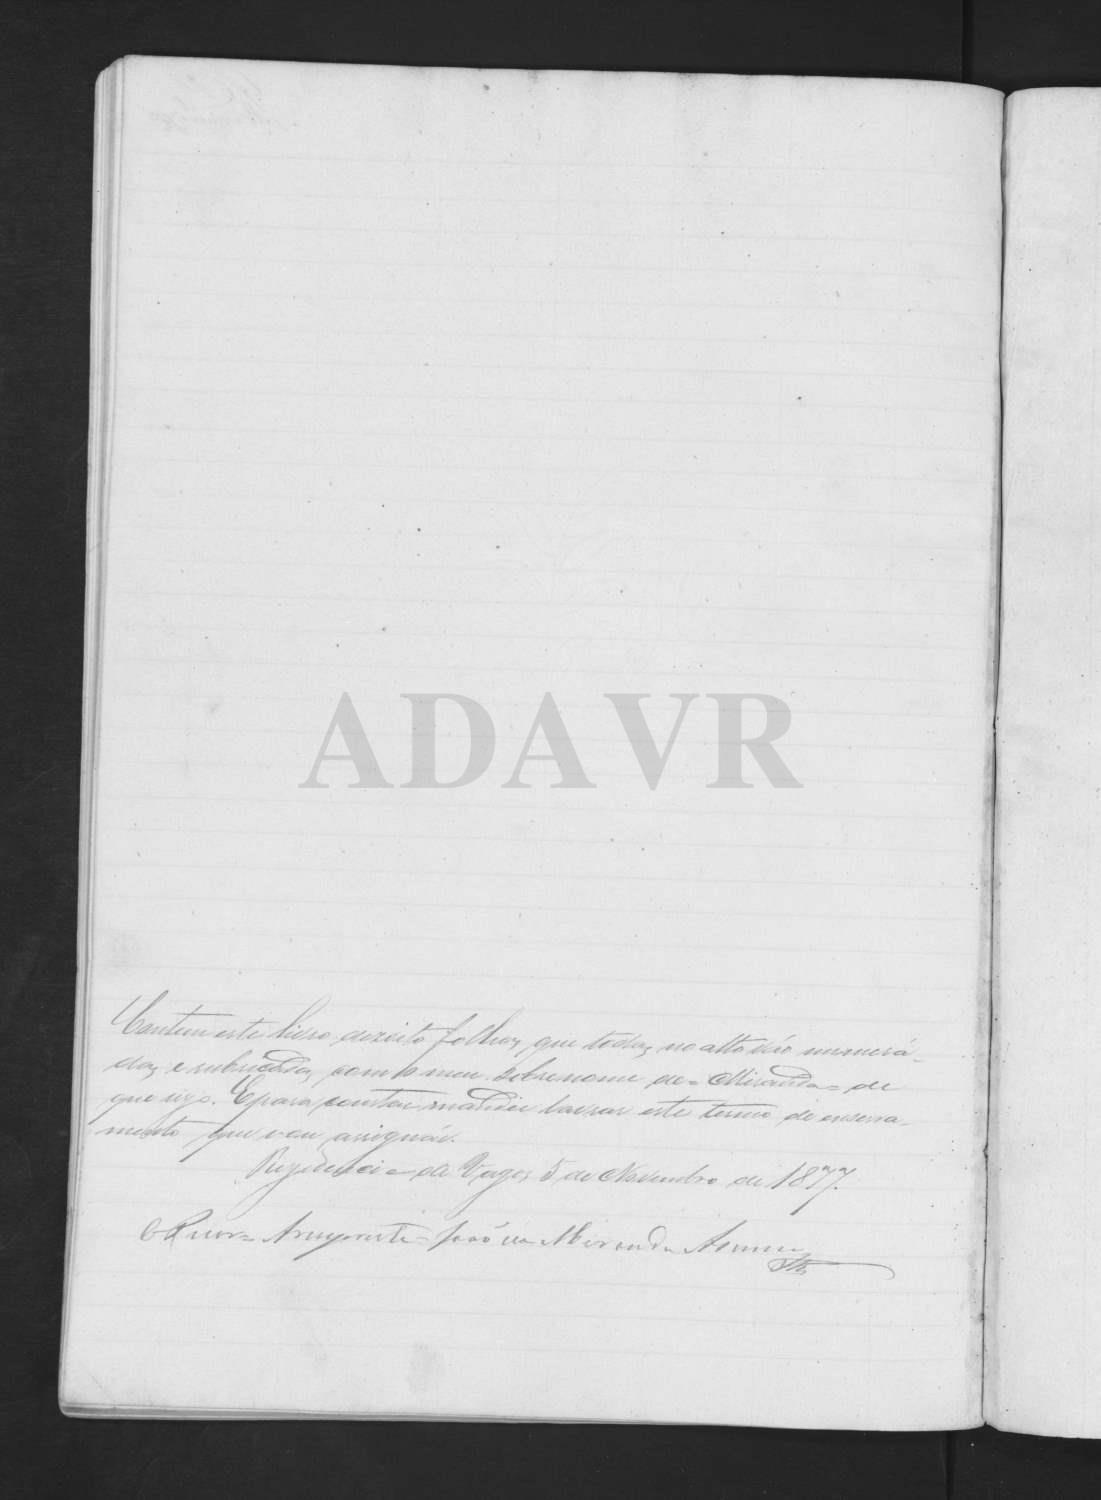 ADAVR
Contem este livro dezoito folhas, que todas no alto vão numera-
das, e rubricadas com o meu sobrenome de = Miranda = de
que uzo. E para constar mandei lavrar este termo de enserra-
mento que vou assignar.
Rezidencia de Vagos 5 de Novembro de 1877.
O Prior = Arcypreste = João de Miranda